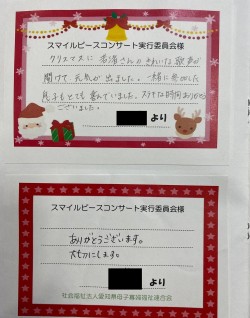 スマイルピースコンサート実行委員会様
クリスマスに きれいな歌声が
聞けて 元気が出ました。一緒に参加した
息子もとても喜んでいました。ステキな時間ありがとう
ございました。
より
スマイルピースコンサート実行委員会様
ありがとうございます。
大切にします。
より
社会福祉法人愛知県母子寡婦福祉連合会